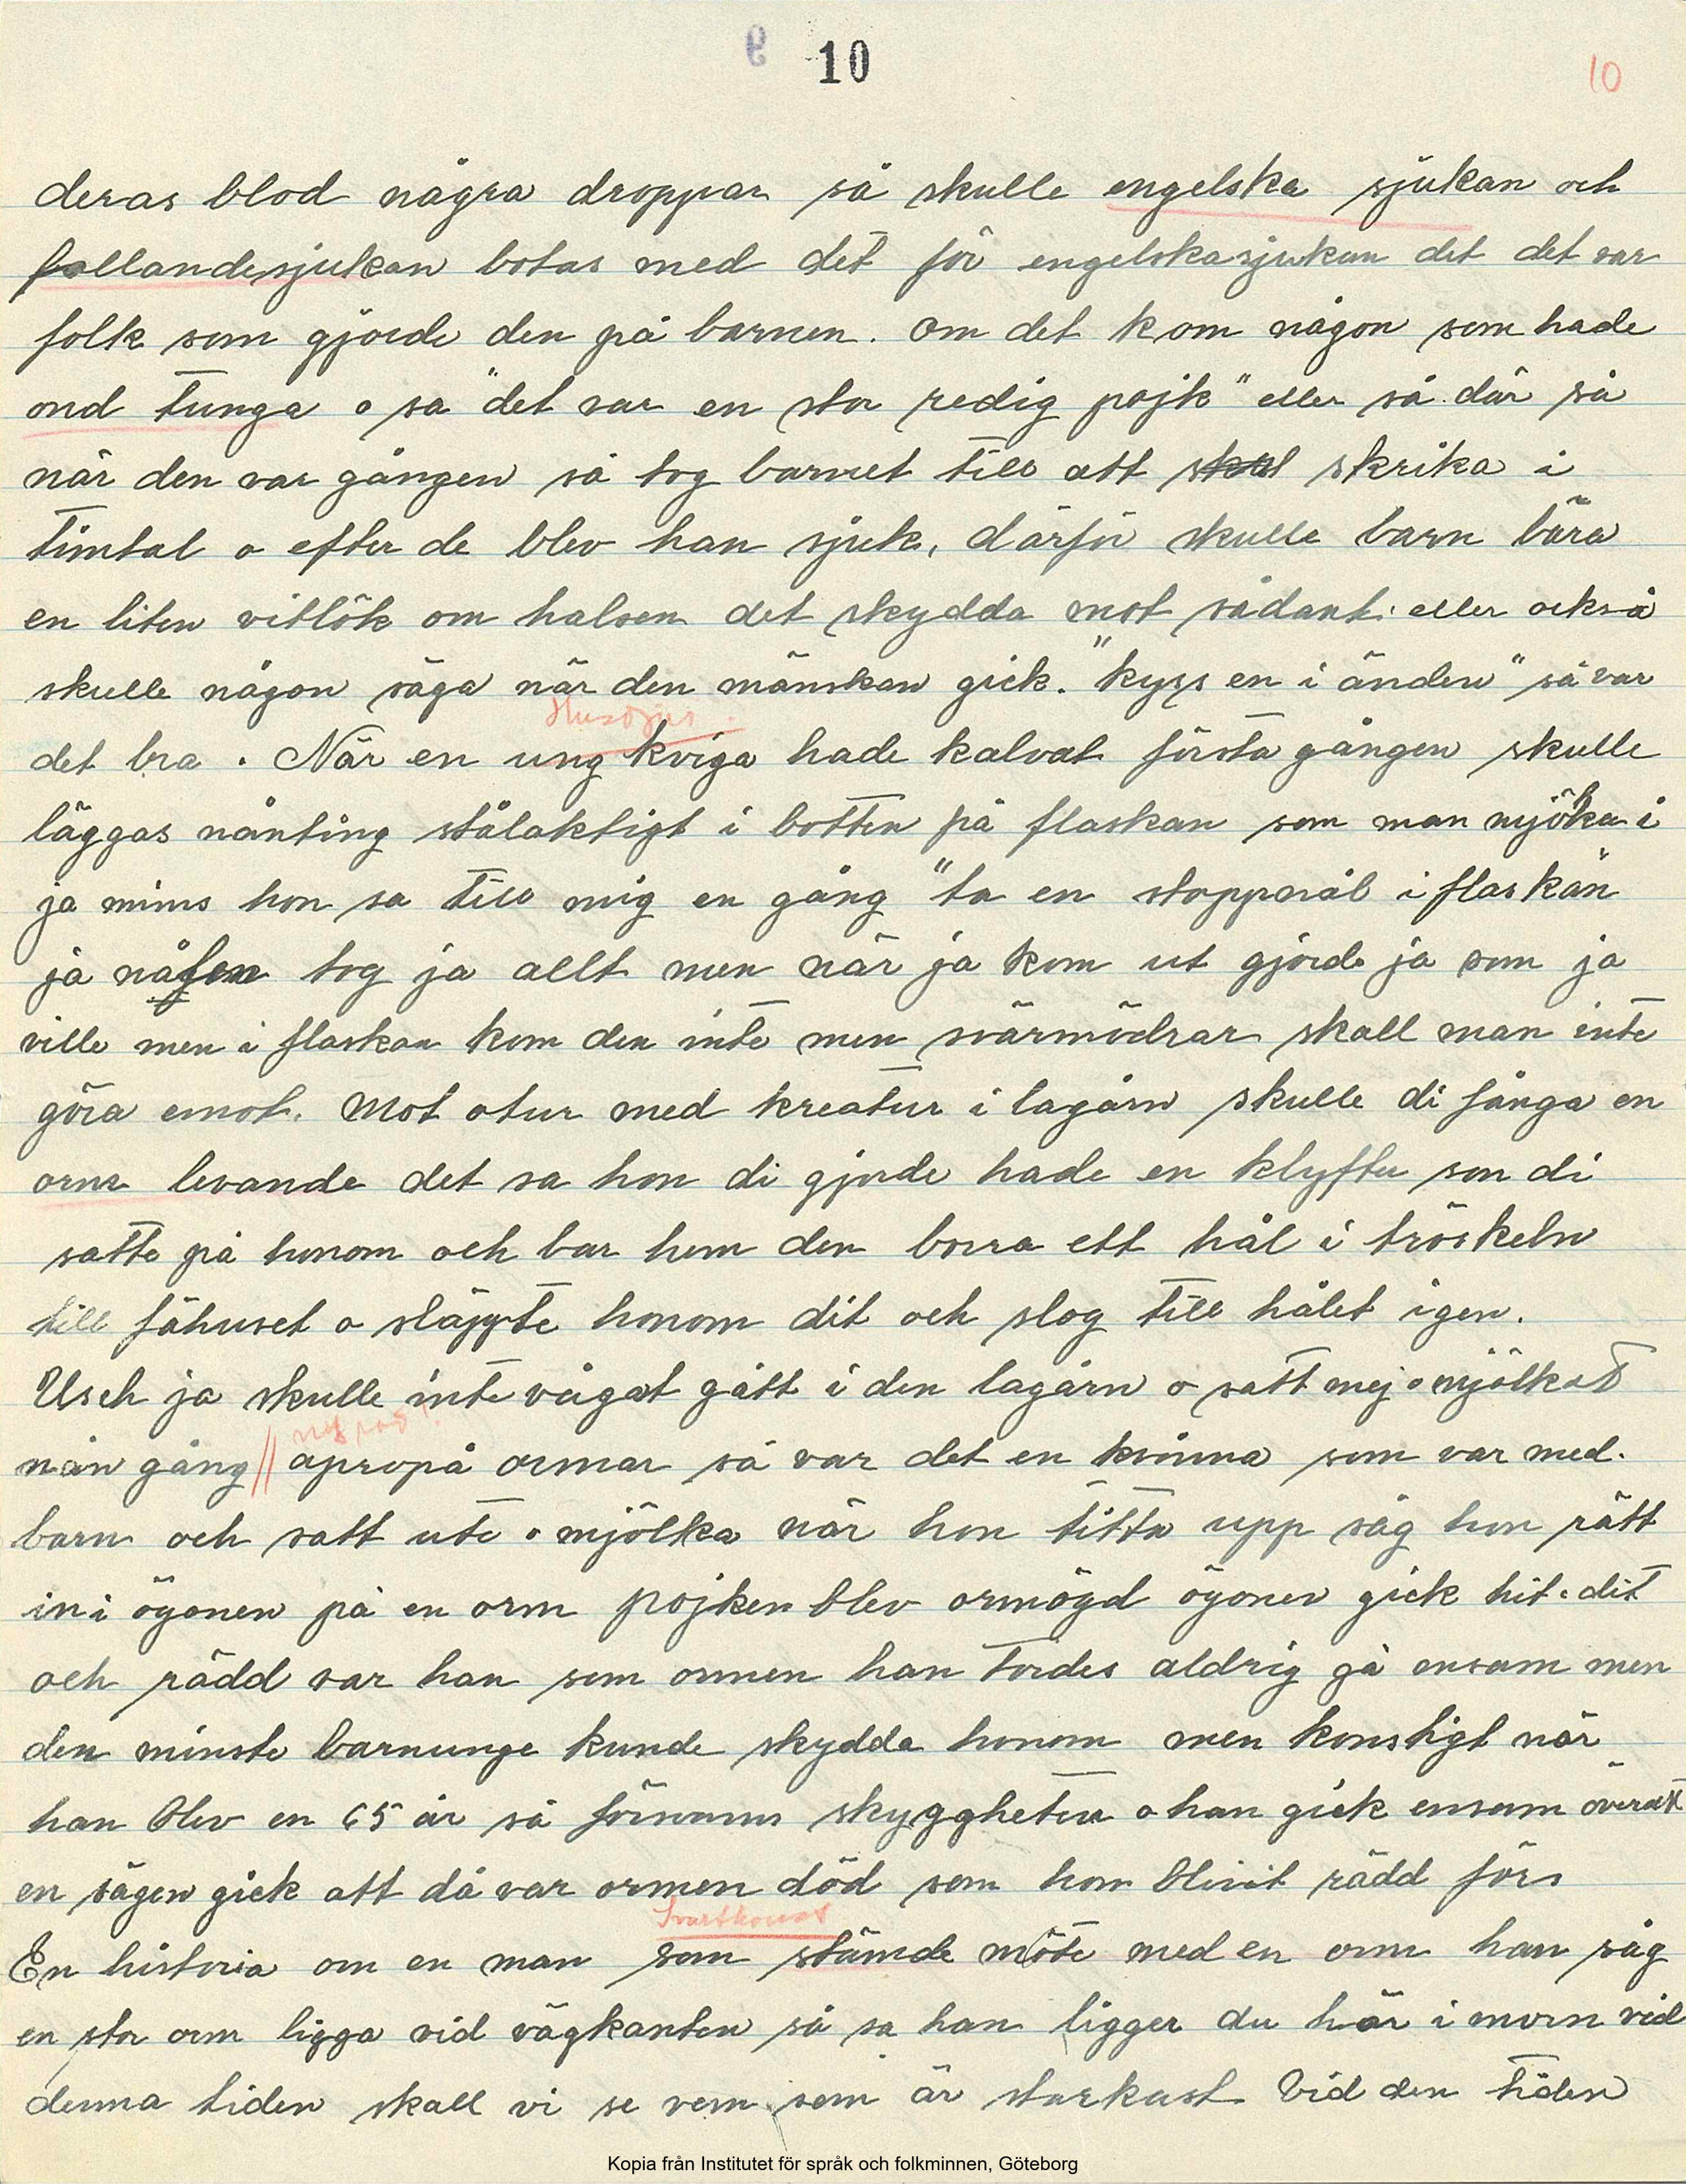 9 10
10
deras blod några droppar så skulle engelska sjukan och
fallandesjukan botas med det för engelskasjukan det det var
folk som gjorde den på barnen. Om det kom någon som hade
ond tunga o sa "det var en stor redig pojk" eller så där så
när den var gången så tog barnet till att skrika i
timtal o efter de blev han sjuk, därför skulle barn bära
en liten vitlök om halsen det skydda mot sådant. eller också
skulle någon säga när den mänskan gick. "kyss en i änden" så var
Husdjur.
det bra. När en ung kviga hade kalvat första gången skulle
läggas nånting stålaktigt i botten på flaskan som man mjölka i
ja mins hon sa till mig en gång "ta en stoppenål i flaskan
ja nålen tog ja allt men när ja kom ut gjorde ja som ja
ville men i flaskan kom den inte men svärmödrar skall man inte
göra emot. Mot otur med kreatur i lagårn skulle di fånga en
orm levande det sa hon di gjorde hade en klyfta som di
satte på honom och bar hem den borra ett hål i tröskeln
till fähuset o släppte honom dit och slog till hålet igen.
Usch ja skulle inte vågat gått i den lagårn o satt mej o mjölkat
nån gång // apropå ormar så var det en kvinna som var med.
barn och satt ute o mjölka när hon titta upp såg hon rätt
in i ögonen på en orm pojken blev ormögd ögonen gick hit o dit
och rädd var han som ormen han tordes aldrig gå ensam men
den minste barnunge kunde skydda honom men konstigt när
han blev en 65 år så försvann skyggheten o han gick ensam överallt
en sägen gick att då var ormen död som hon blivit rädd för
Svartkonst
En historia om en man som stämde möte med en orm han såg
en stor orm ligga vid vägkanten så sa han ligger du här i morn vid
denna tiden skall vi se vem som är starkast Vid den tiden
Kopia från Institutet för språk och folkminnen, Göteborg